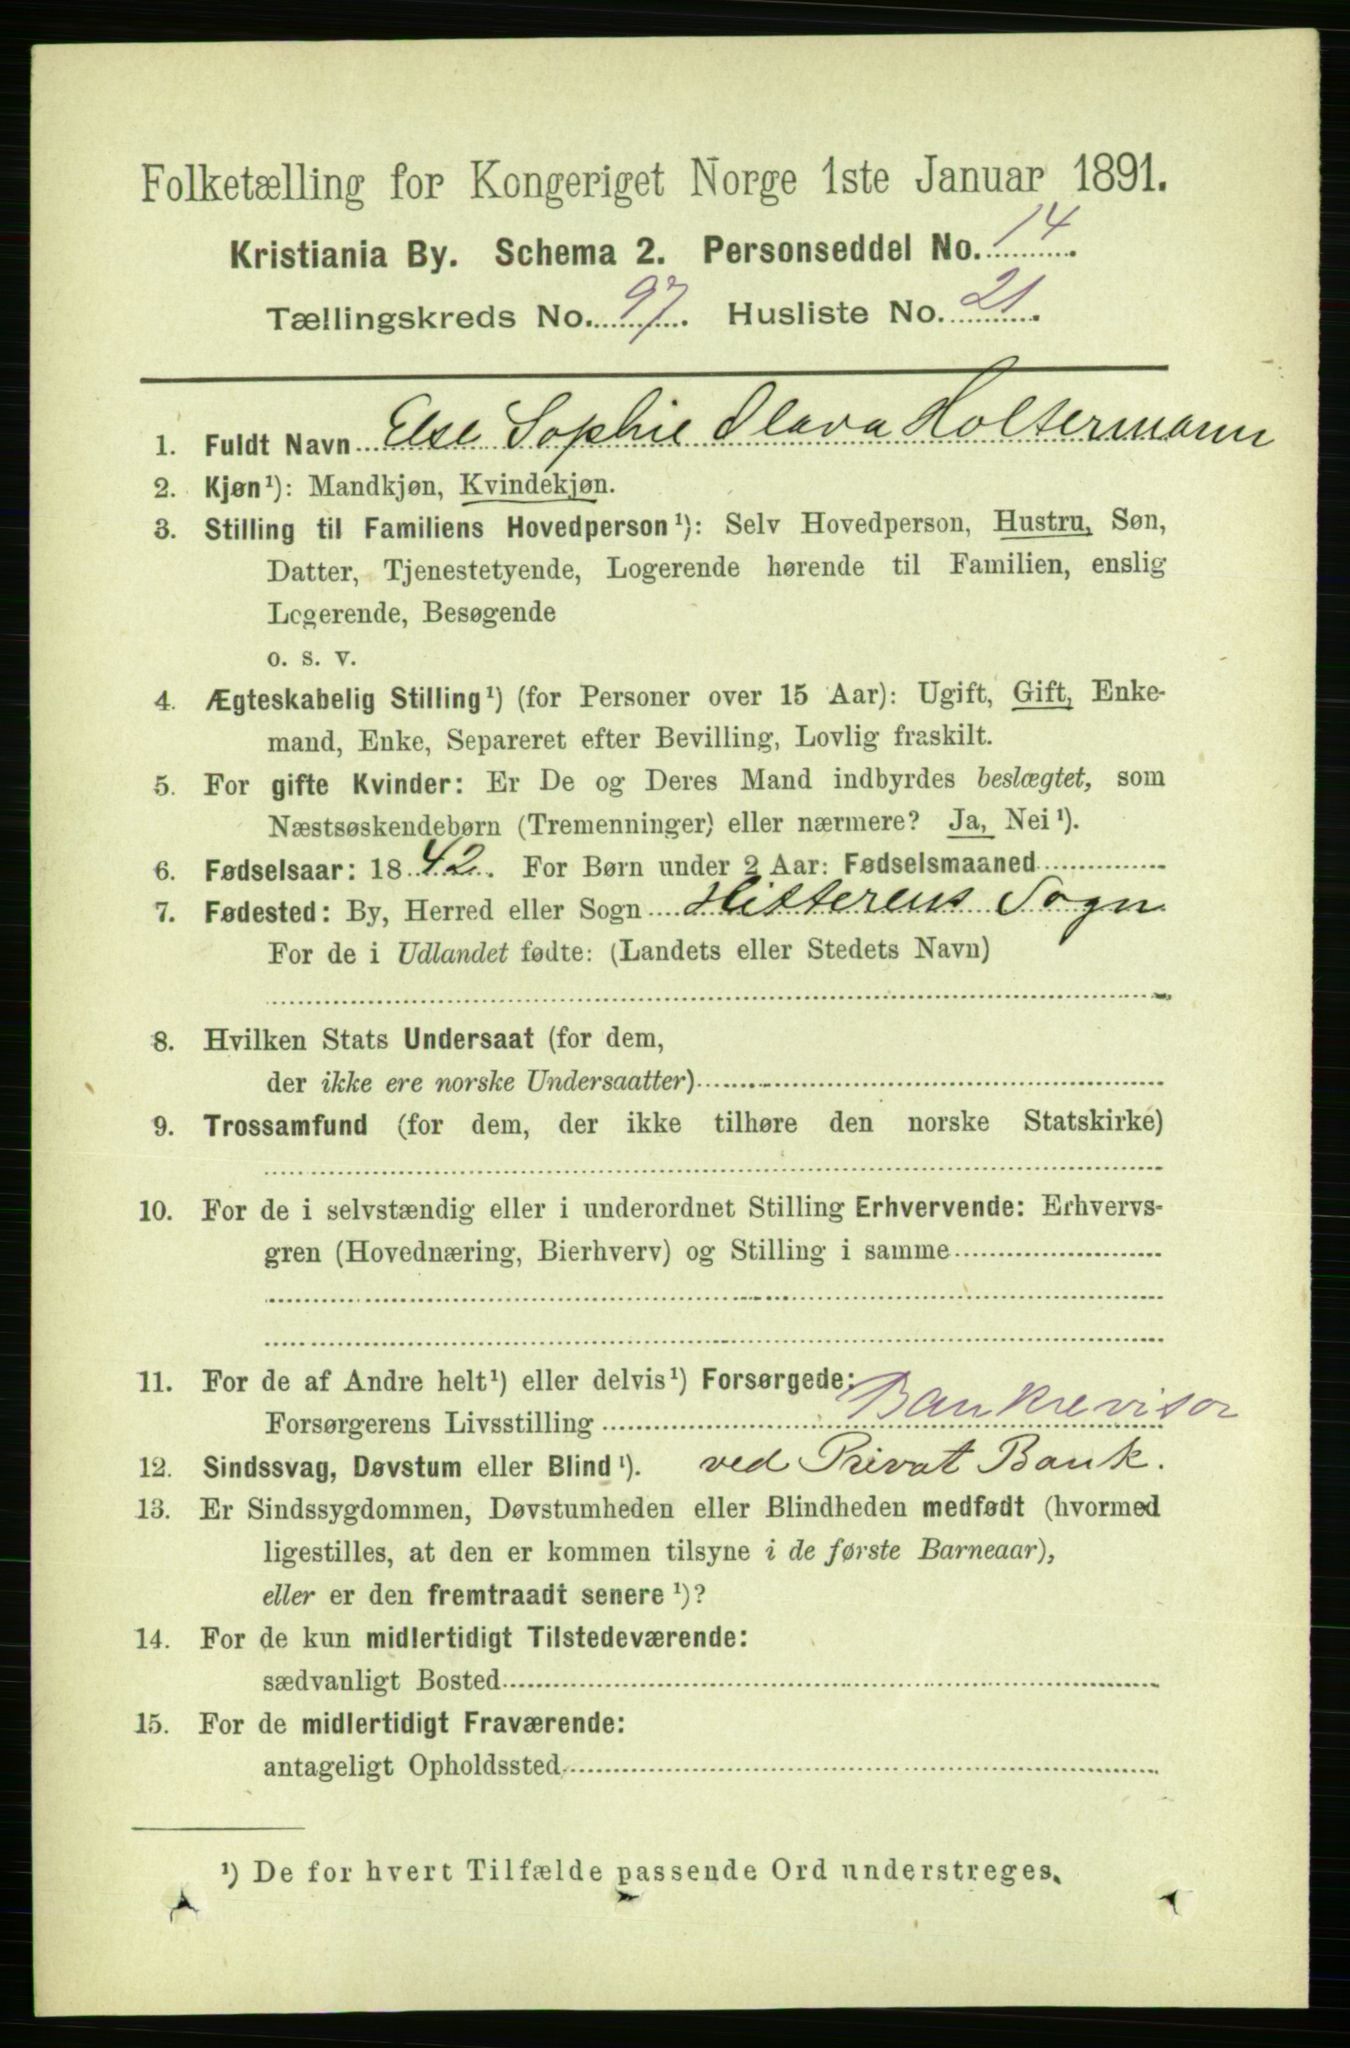 Folketælling for Kongeriget Norge 1ste Januar 1891.
Kristiania By. Schema 2. Personseddel No. 14.
Tællingskreds No. 97. Husliste No. 21.
1. Fuldt Navn Else Sophie Olava Holtermann
2. Kjøn¹): Mandkjøn, Kvindekjøn.
3. Stilling til Familiens Hovedperson¹): Selv Hovedperson, Hustru, Søn,
Datter, Tjenestetyende, Logerende hørende til Familien, enslig
Logerende, Besøgende
o. s. v.
4. Ægteskabelig Stilling¹) (for Personer over 15 Aar): Ugift, Gift, Enke-
mand, Enke, Separeret efter Bevilling, Lovlig fraskilt.
5. For gifte Kvinder: Er De og Deres Mand indbyrdes beslægtet, som
Næstsøskendebørn (Tremenninger) eller nærmere? Ja, Nei¹).
6. Fødselsaar: 1842. For Børn under 2 Aar: Fødselsmaaned
7. Fødested: By, Herred eller Sogn Hitterens Sogn
For de i Udlandet fødte: (Landets eller Stedets Navn)
8. Hvilken Stats Undersaat (for dem,
der ikke ere norske Undersaatter)
9. Trossamfund (for dem, der ikke tilhøre den norske Statskirke)
10. For de i selvstændig eller i underordnet Stilling Erhvervende: Erhvervs-
gren (Hovednæring, Bierhverv) og Stilling i samme
11. For de af Andre helt¹) eller delvis¹) Forsørgede:
Forsørgerens Livsstilling Bankrevisor
12. Sindssvag, Døvstum eller Blind¹). ved Privat Bank.
13. Er Sindssygdommen, Døvstumheden eller Blindheden medfødt (hvormed
ligestilles, at den er kommen tilsyne i de første Barneaar),
eller er den fremtraadt senere¹)?
14. For de kun midlertidigt Tilstedeværende:
sædvanligt Bosted
15. For de midlertidigt Fraværende:
antageligt Opholdssted
¹) De for hvert Tilfælde passende Ord understreges.